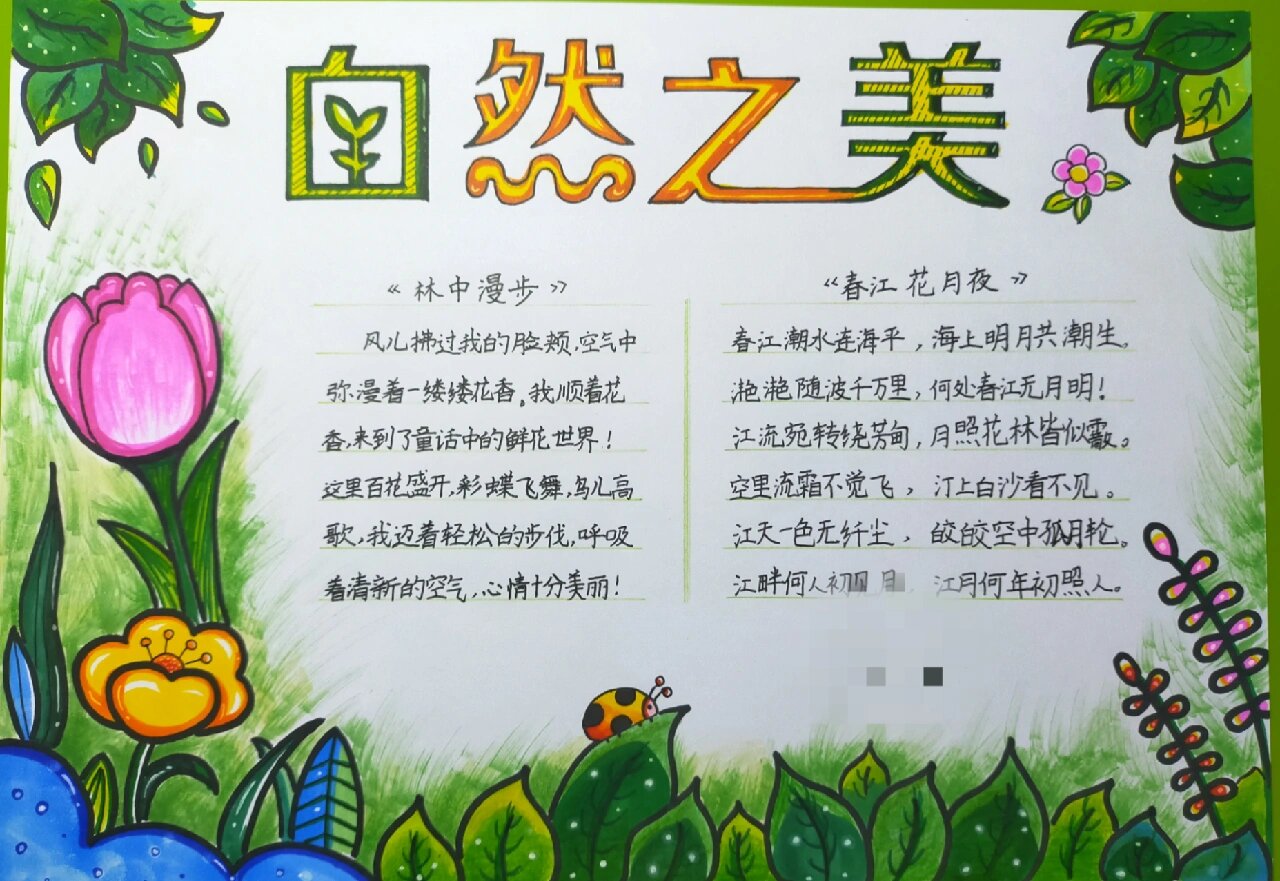 自然之美
《林中漫步》
风儿拂过我的脸颊,空气中
弥漫着一缕缕花香。我顺着花
香,来到了童话中的鲜花世界!
这里百花盛开,彩蝶飞舞,鸟儿高
歌,我迈着轻松的步伐,呼吸
着清新的空气,心情十分美丽!
《春江花月夜》
春江潮水连海平,海上明月共潮生。
滟滟随波千万里,何处春江无月明!
江流宛转绕芳甸,月照花林皆似霰。
空里流霜不觉飞,汀上白沙看不见。
江天一色无纤尘,皎皎空中孤月轮。
江畔何人初见月,江月何年初照人。